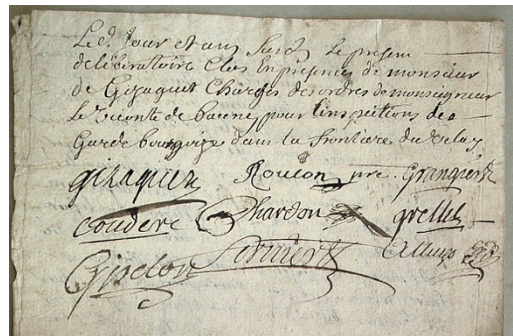 Led. Jour et an susd. Le presen
deliberatoire Clos En presences de monsieur
de Gizaguet Charges des ordres de monseigneur
Le Viconte de baune, pour linspections des
Garde bourgoize dans la frontiere du Velay
gizaguet Roulon pre. Grangier
Couderc Chardon grellet
Gisclon Alluis